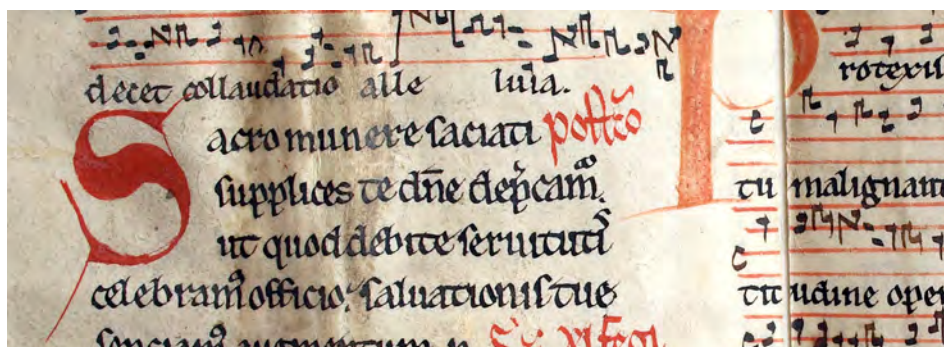 decet collaudatio alle luia.
Sacro munere saciati postcō
supplices te dn̄e dep̄camᷣ.
ut quod debite seruitutis
celebramꝰ officio. saluationis tue
senciamꝰ augmentum. p.
Protexis
tu malignan
titudine oper